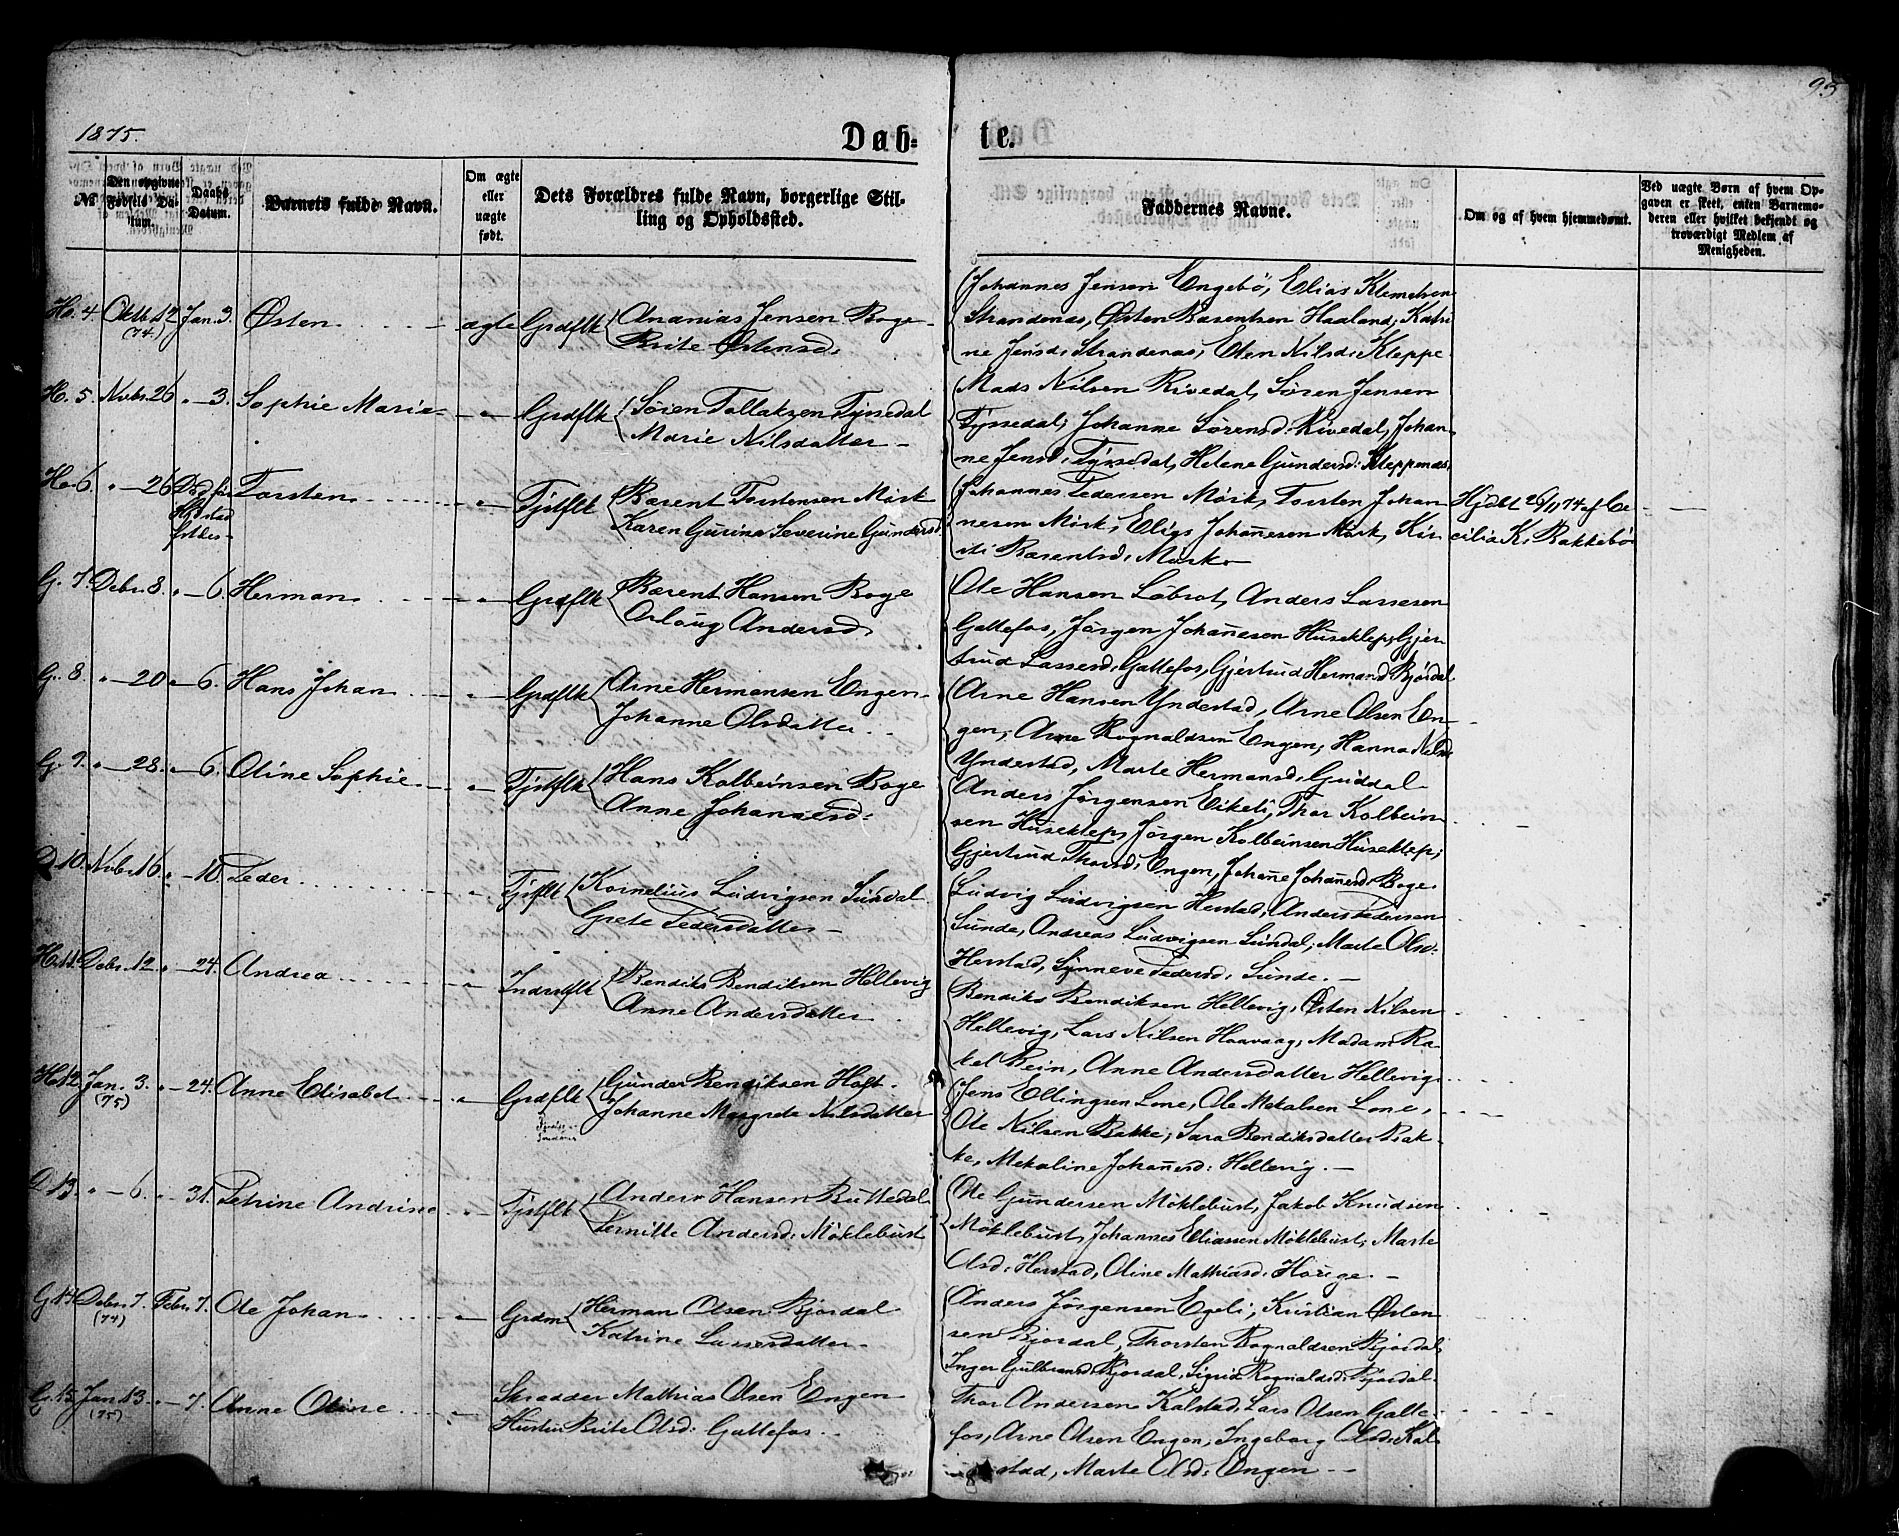 93
1875.
Døb- te.
№
Den opgivne Fødsels Datum.
Daabs Datum.
Barnets fulde Navn.
Om ægte eller uægte født.
Dets Forældres fulde Navn, borgerlige Stilling og Opholdssted.
Faddernes Navne.
Om og af hvem hjemmedømt.
Ved uægte Børn af hvem Opgaven er skeet, enten Barnemoderen eller hvilket bekjendt og troværdigt Medlem af Menigheden.
H. 4. Oktb. 12 (74.) Jan. 3. Østen ægte Grdflk Ananias Jensen Boge
Brite Østensd:
Johannes Jensen Engebö, Elias Klemetsen
Strandenæs, Østen Bærentsen Haaland, Katri
ne Jensd: Strandenæs, Elen Nilsd: Kleppe
H. 5. Novbr. 26 " — 3. Sophie Marie " Grdflk Sören Tollaksen Tyssedal
Marie Nilsdatter
Mads Nilsen Rivedal, Sören Jensen
Tyssedal, Johanne Sörensd: Rivedal, Johan
ne Jensd: Tyssedal, Helene Gundersd: Kleppenæs
H. 6. " — 26 Død før
foldes
Torsten " Tjstflk Bærent Torstensen Mörk
Karen Gurine Severine Gundersd
Johannes Pedersen Mörk, Torsten Johan
nesen Mörk, Elias Johañesen Mörk, Kir
sti Bærentsd: Mörk
Hjdbt 26/11 74 af Ce
cilia K. Bakkebö
G. 7. Debr. 8. " — 6. Herman " Grdflk Bærent Hansen Boge
Arloug Andersd
Ole Hansen Löbrot, Anders Lassesen
Gallefos, Jörgen Johañesen Huseklep, Gjer
trud Lassesd: Gallefos, Gjertrud Hermansd Björdal
G. 8. " — 20 " — 6. Hans Johan " Grdflk Arne Hermansen Engen
Johanne Olsdatter
Arne Hansen Yndestad, Arne Olsen En
gen, Arne Rognaldsen Engen, Hanna Nilsd
Yndestad, Marte Hermansd: Guddal
G. 9. " — 28. " — 6. Oline Sophie " Tjstflk Hans Kolbeinsen Boge
Anne Johannesd:
Anders Jörgensen Eikeli, Thor Kolbein
sen Huseklep, Jörgen Kolbeinsen Huseklep,
Gjertrud Thorsd: Engen, Johañe Johañesd: Boge
D. 10. Novbr. 16 " — 10. Peder " Tjstflk Kornelius Ludvigsen Sundal
Grete Pedersdatter
Ludvig Ludvigsen Herstad, Anders Pedersen
Sunde, Andreas Ludvigsen Sundal, Marte Olsd:
Herstad, Synneve Pedersd: Sunde.
H. 11. Debr. 12. " — 24. Andrea " Indrstflk Bendiks Bendiksen Hellevig
Anne Andersdatter
Bendiks Bendiksen Hellevig, Østen Nilsen
Hellevig, Lars Nilsen Haavaag, Madam Ra
kel Bein, Anne Andersdatter Hellevig
H. 12. Jan. 3. (75) " — 24. Anne Elisabet " Grdflk Gunder Bendiksen Hoft
Johanne Margrete Nilsdatter
Jens Ellingsen Lone, Ole Mekalsen Lone,
Ole Nilsen Bakke, Sara Bendiksdatter Bak
ke, Mekaline Johañesd: Hellevig.
D. 13. " — 6. " — 31. Petrine Andrine " Tjstflk Anders Hansen Buttedal
Pernille Andersd: Möklebust
Ole Gundersen Möklebust, Jakob Knudsen
Möklebust, Johannes Eliassen Möklebust, Marte
Olsd: Herstad, Oline Mathiasd: Houge.
G. 14. Debr. 7. (74) Febr. 7. Ole Johan " Grdm Herman Olsen Bjordal
Katrine Lassesdatter
Anders Jörgensen Egeli, Kristian Østen
sen Bjordal, Thorsten Rognaldsen Bjordal,
Inger Gulbrandsd Bjordal, Sigrid Rognaldsd: Bjordal
G. 15. Jan. 13. (75) " — 7. Anne Oline " Skrædder Mathias Olsen Engen
Hustru Brite Olsd: Gallefos
Thor Andersen Kalstad, Lars Olsen Galle
fos, Arne Olsen Engen, Ingeborg Olsd: Kal
stad, Marte Olsd: Engen